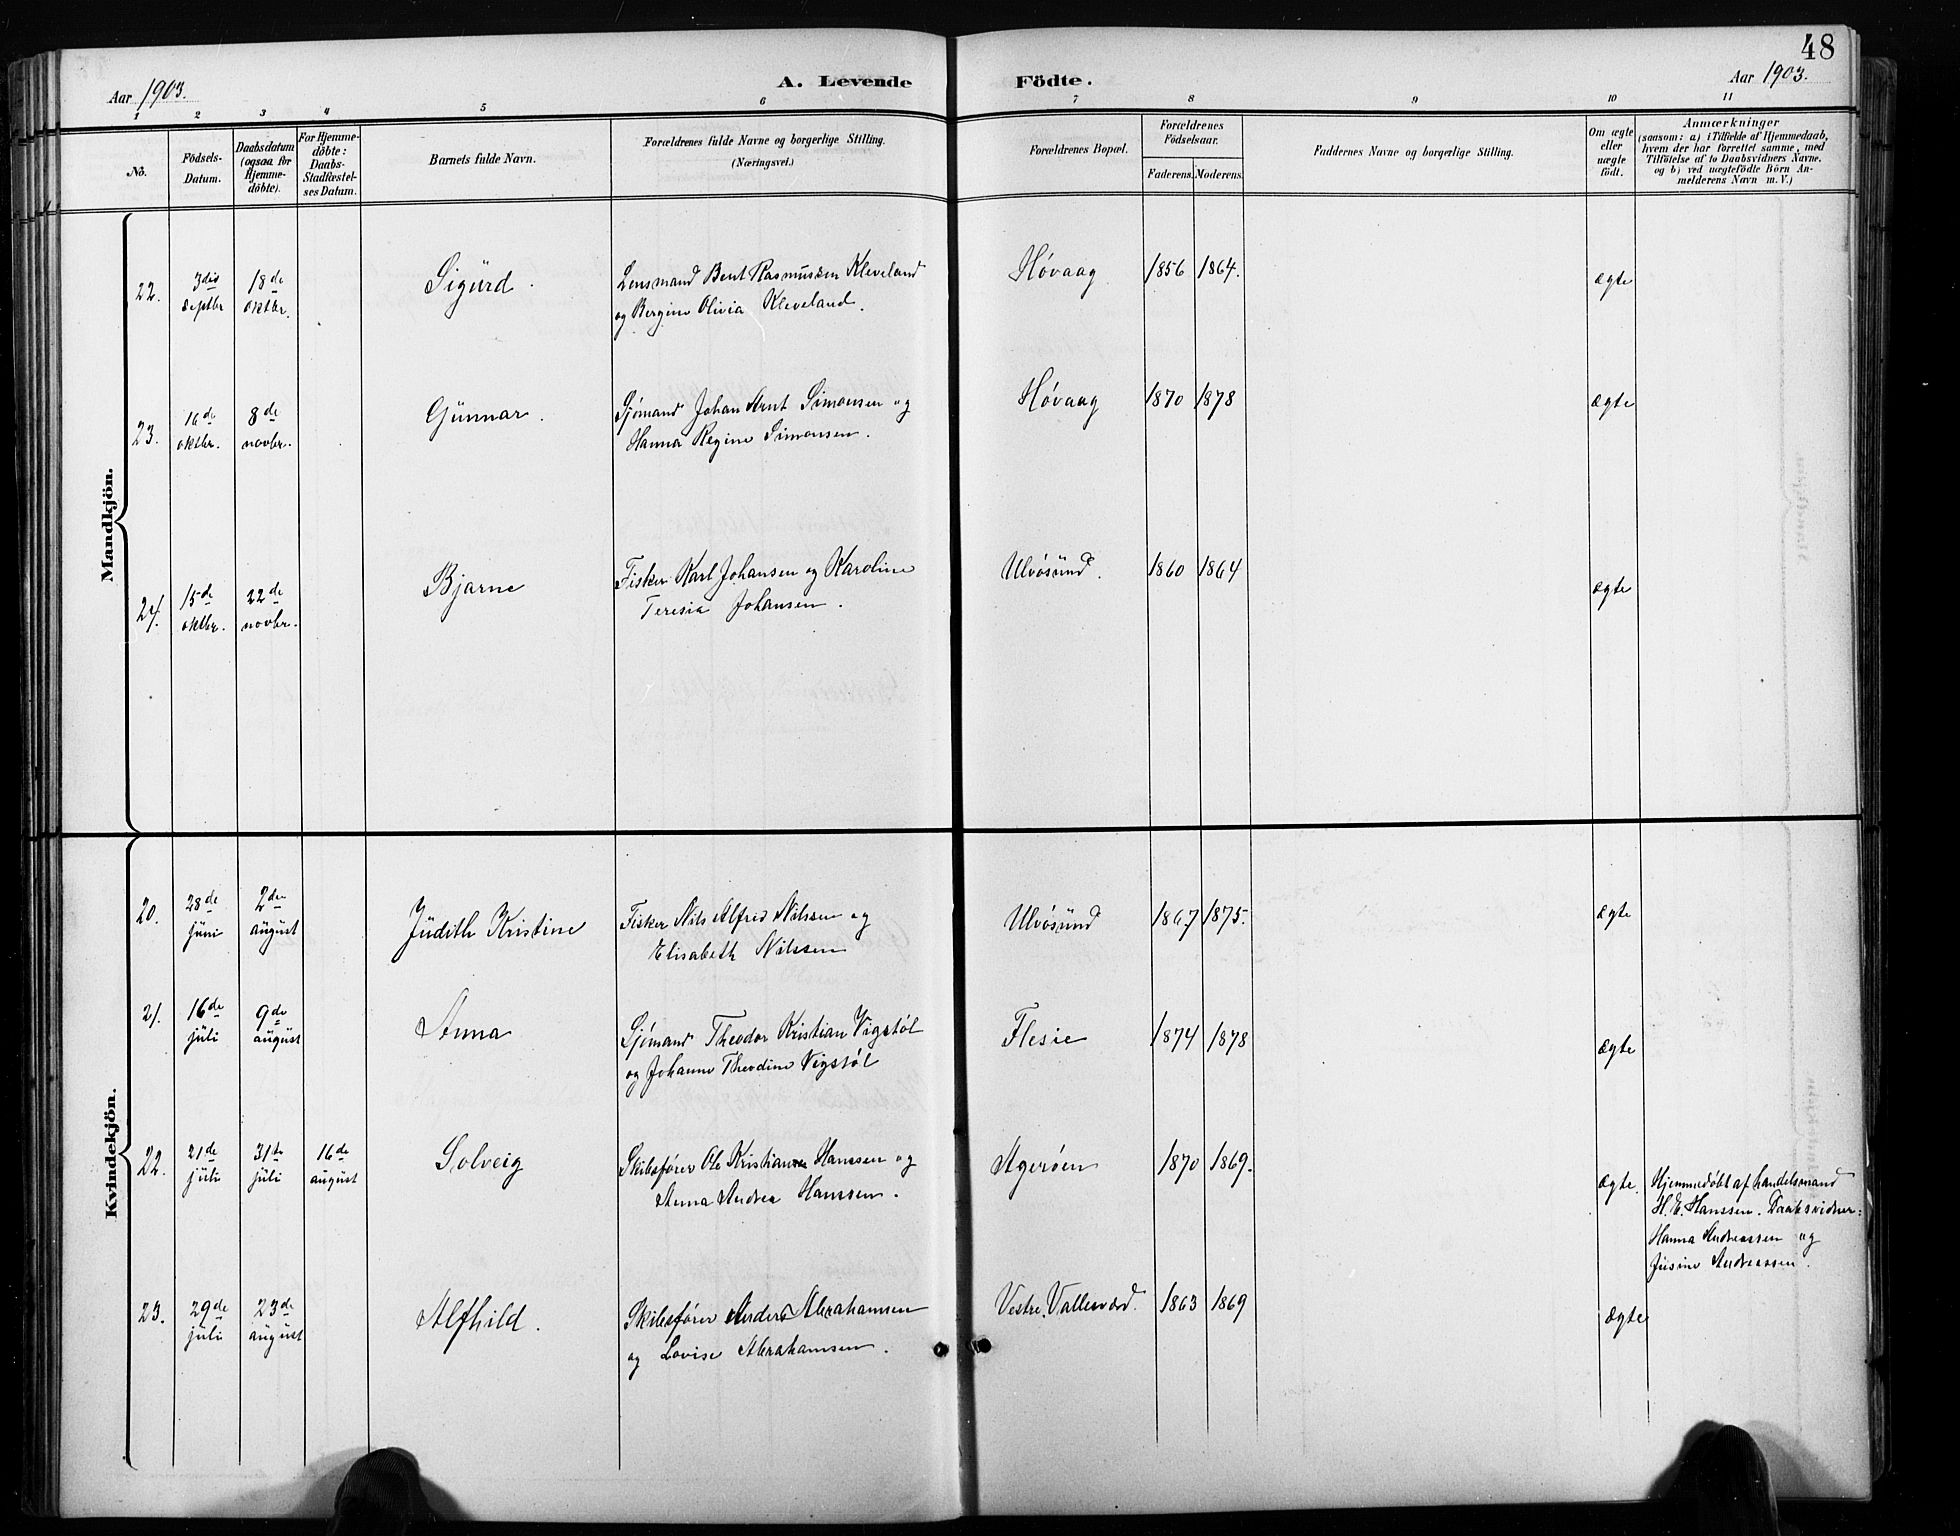 48
Aar 1903.
A. Levende Födte.
Aar 1903.
1 2 3 4 5 6 7 8 9 10 11
No.
Födsels-
Datum.
Daabsdatum
(ogsaa for
Hjemme-
döbte).
For Hjemme-
döbte:
Daabs-
Stadfæstel-
ses Datum.
Barnets fulde Navn.
Forældrenes fulde Navne og borgerlige Stilling.
(Næringsvei.)
Forældrenes Bopæl.
Forældrenes
Födselsaar.
Faderens. Moderens.
Faddernes Navne og borgerlige Stilling.
Om ægte
eller
uægte
födt.
Anmærkninger
(saasom: a) i Tilfælde af Hjemmedaab,
hvem der har forrettet samme, med
Tilföielse af to Daabsvidners Navne,
og b) ved uægtefödte Börn An-
melderens Navn m. V.)
Mandkjön.
22. 3die septbr 18de oktbr. Sigurd. Lensmand Bent Rasmussen Kleveland Høvaag 1856 1864. ægte
og Bergine Olivia Kleveland.
23. 16de oktbr. 8de novbr. Gunnar. Sjømand Johan Arnt Simonsen og Høvaag 1870 1878 ægte
Hanna Regine Simonsen.
24. 15de oktbr. 22de novbr. Bjarne Fisker Karl Johansen og Karoline Ulvøsund. 1860 1864 ægte
Teresia Johansen.
Kvindekjön.
20. 28de juni 2den august Judith Kristine Fisker Nils Alfred Nilssen og Ulvøsund 1867 1875. ægte
Elisabeth Nilssen
21. 16de juli 9de august Anna Sjømand Theodor Kristian Vigstøl Flesie 1874 1878 ægte
og Johanne Theodine Vigstøl
22. 21de juli 31te juli 16de august Solveig Skibsfører Ole Kristian Hanssen og Agerøen 1870 1869. ægte.
Anna Andrea Hanssen.
Hjemmedøbt af handelsmand
H. E. Hanssen. Daabsvidner:
Hanna Andreassen og
Jusine Andreassen.
23. 29de juli 23de august Alfhild. Skibsfører Anders Abrahamsen Vestre Vallesværd. 1863 1869 ægte
og Lovise Abrahamsen.